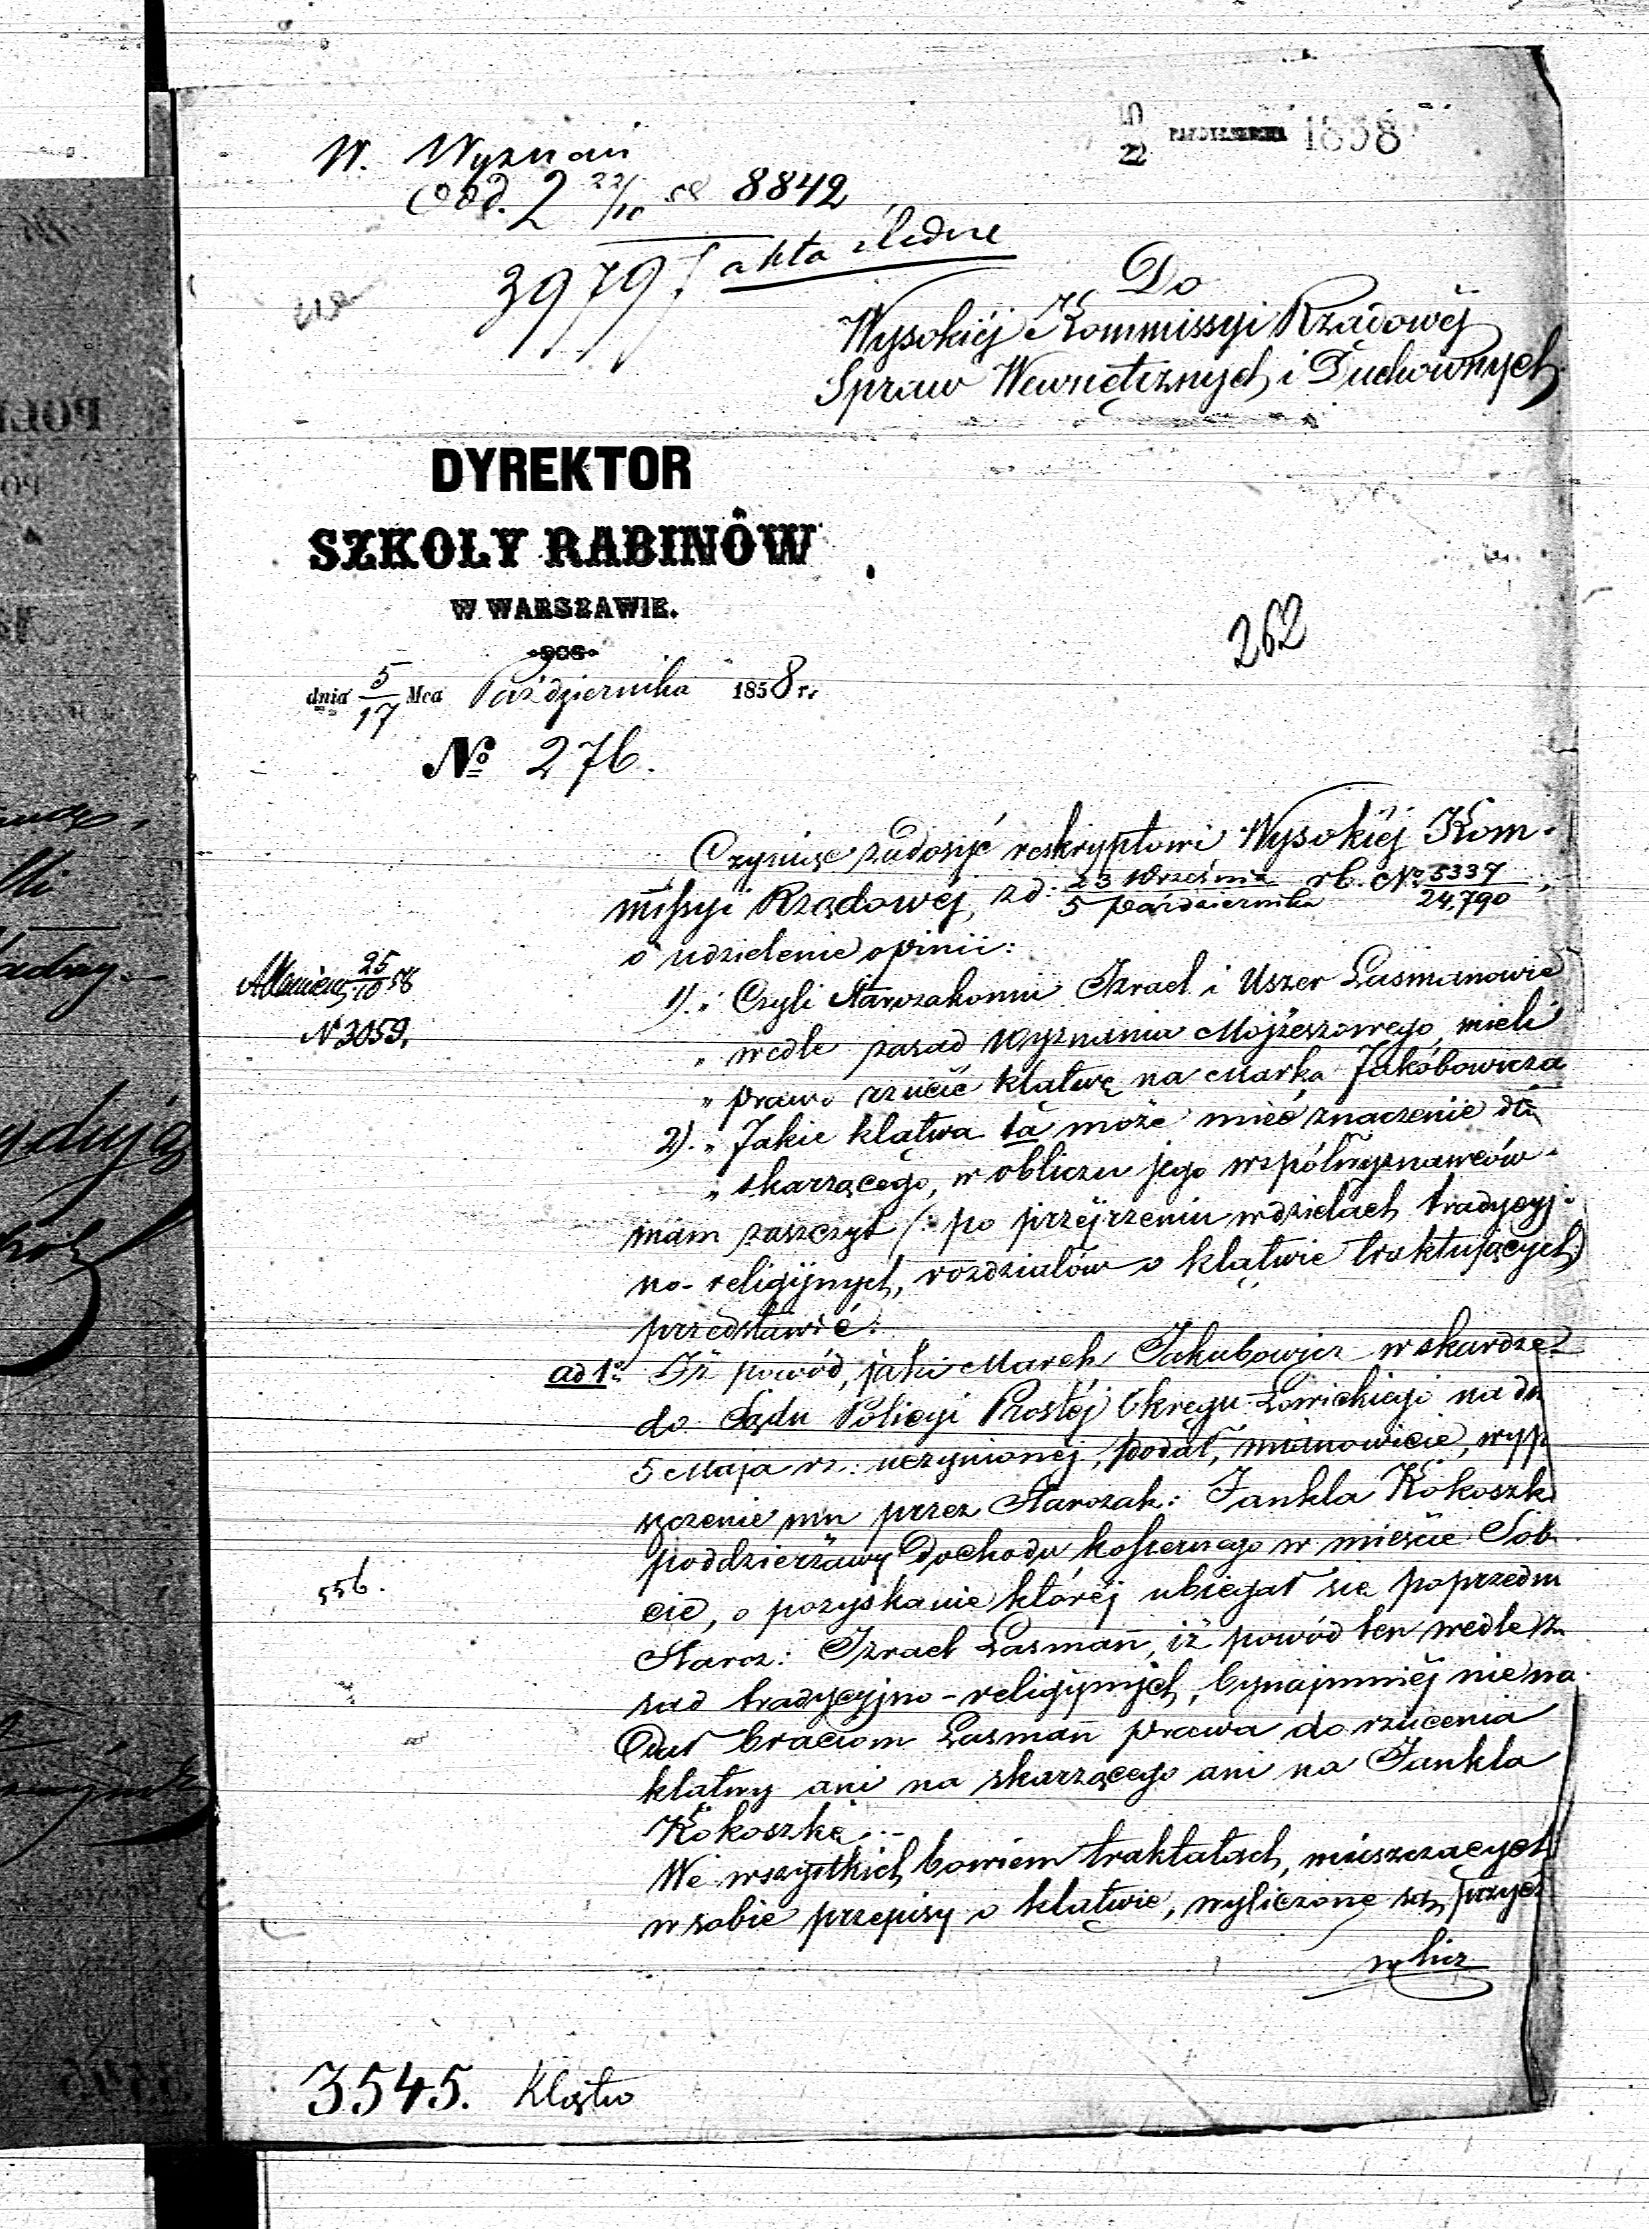 W. Wyznań
8842
3979 / akta śledne
25 PAŹDZIERNIKA 1858
Do
Wysokiéj Kommissyi Rządowéj
Spraw Wewnętrznych i Duchownych
DYREKTOR
SZKOŁY RABINÓW
W WARSZAWIE.
dnia 5/17 Mca Października 1858 r.
№ 276.
262
Czyniąc zadosyć reskryptowi Wysokiéj Kom-
missyi Rządowéj, z d: 23 Września / 5 Października rb. № 5337 / 24,790,
o udzielenie opinii:
25/10 58
N 3059.
1). „ Czyli Starozakonni Izrael i Uszer Lasmanowie
„ wedle zasad Wyznania Mojżeszowego, mieli
„ prawo rzucić klątwę na Marka Jakóbowicza
2). „ Jakie klątwa ta może mieć znaczenie dla
„ skarzącego, w obliczu jego współwyznawców -
mam zaszczyt (: po przejrzeniu w dziełach tradycyj-
no-religijnych, rozdziałów o klątwie traktujących:)
przedstawić:
ad 1o Iż powód, jaki Marek Jakubowicz w skardze
do Sądu Policyi Prostéj Okręgu Łowickiego na dn
5 Maja rz: uczynionéj, podał, mianowicie, wyp
szczenie mu przez Starozak: Jankla Kokoszk
poddzierżawy dochodu koszernego w mieście Sob
cie, o pozyskanie któréj ubiegał się poprzedn
Staroz: Izrael Lasman, iż powód ten wedle za
sad tradycyjno-religijnych, bynajmniéj nie na-
dał braciom Lasman prawa do rzucenia
klątwy ani na skarzącego ani na Jankla
Kokoszkę. -
We wszystkich bowiem traktatach, mieszczących
w sobie przepisy o klątwie, wyliczone są przyc
556.
3545. Klątw